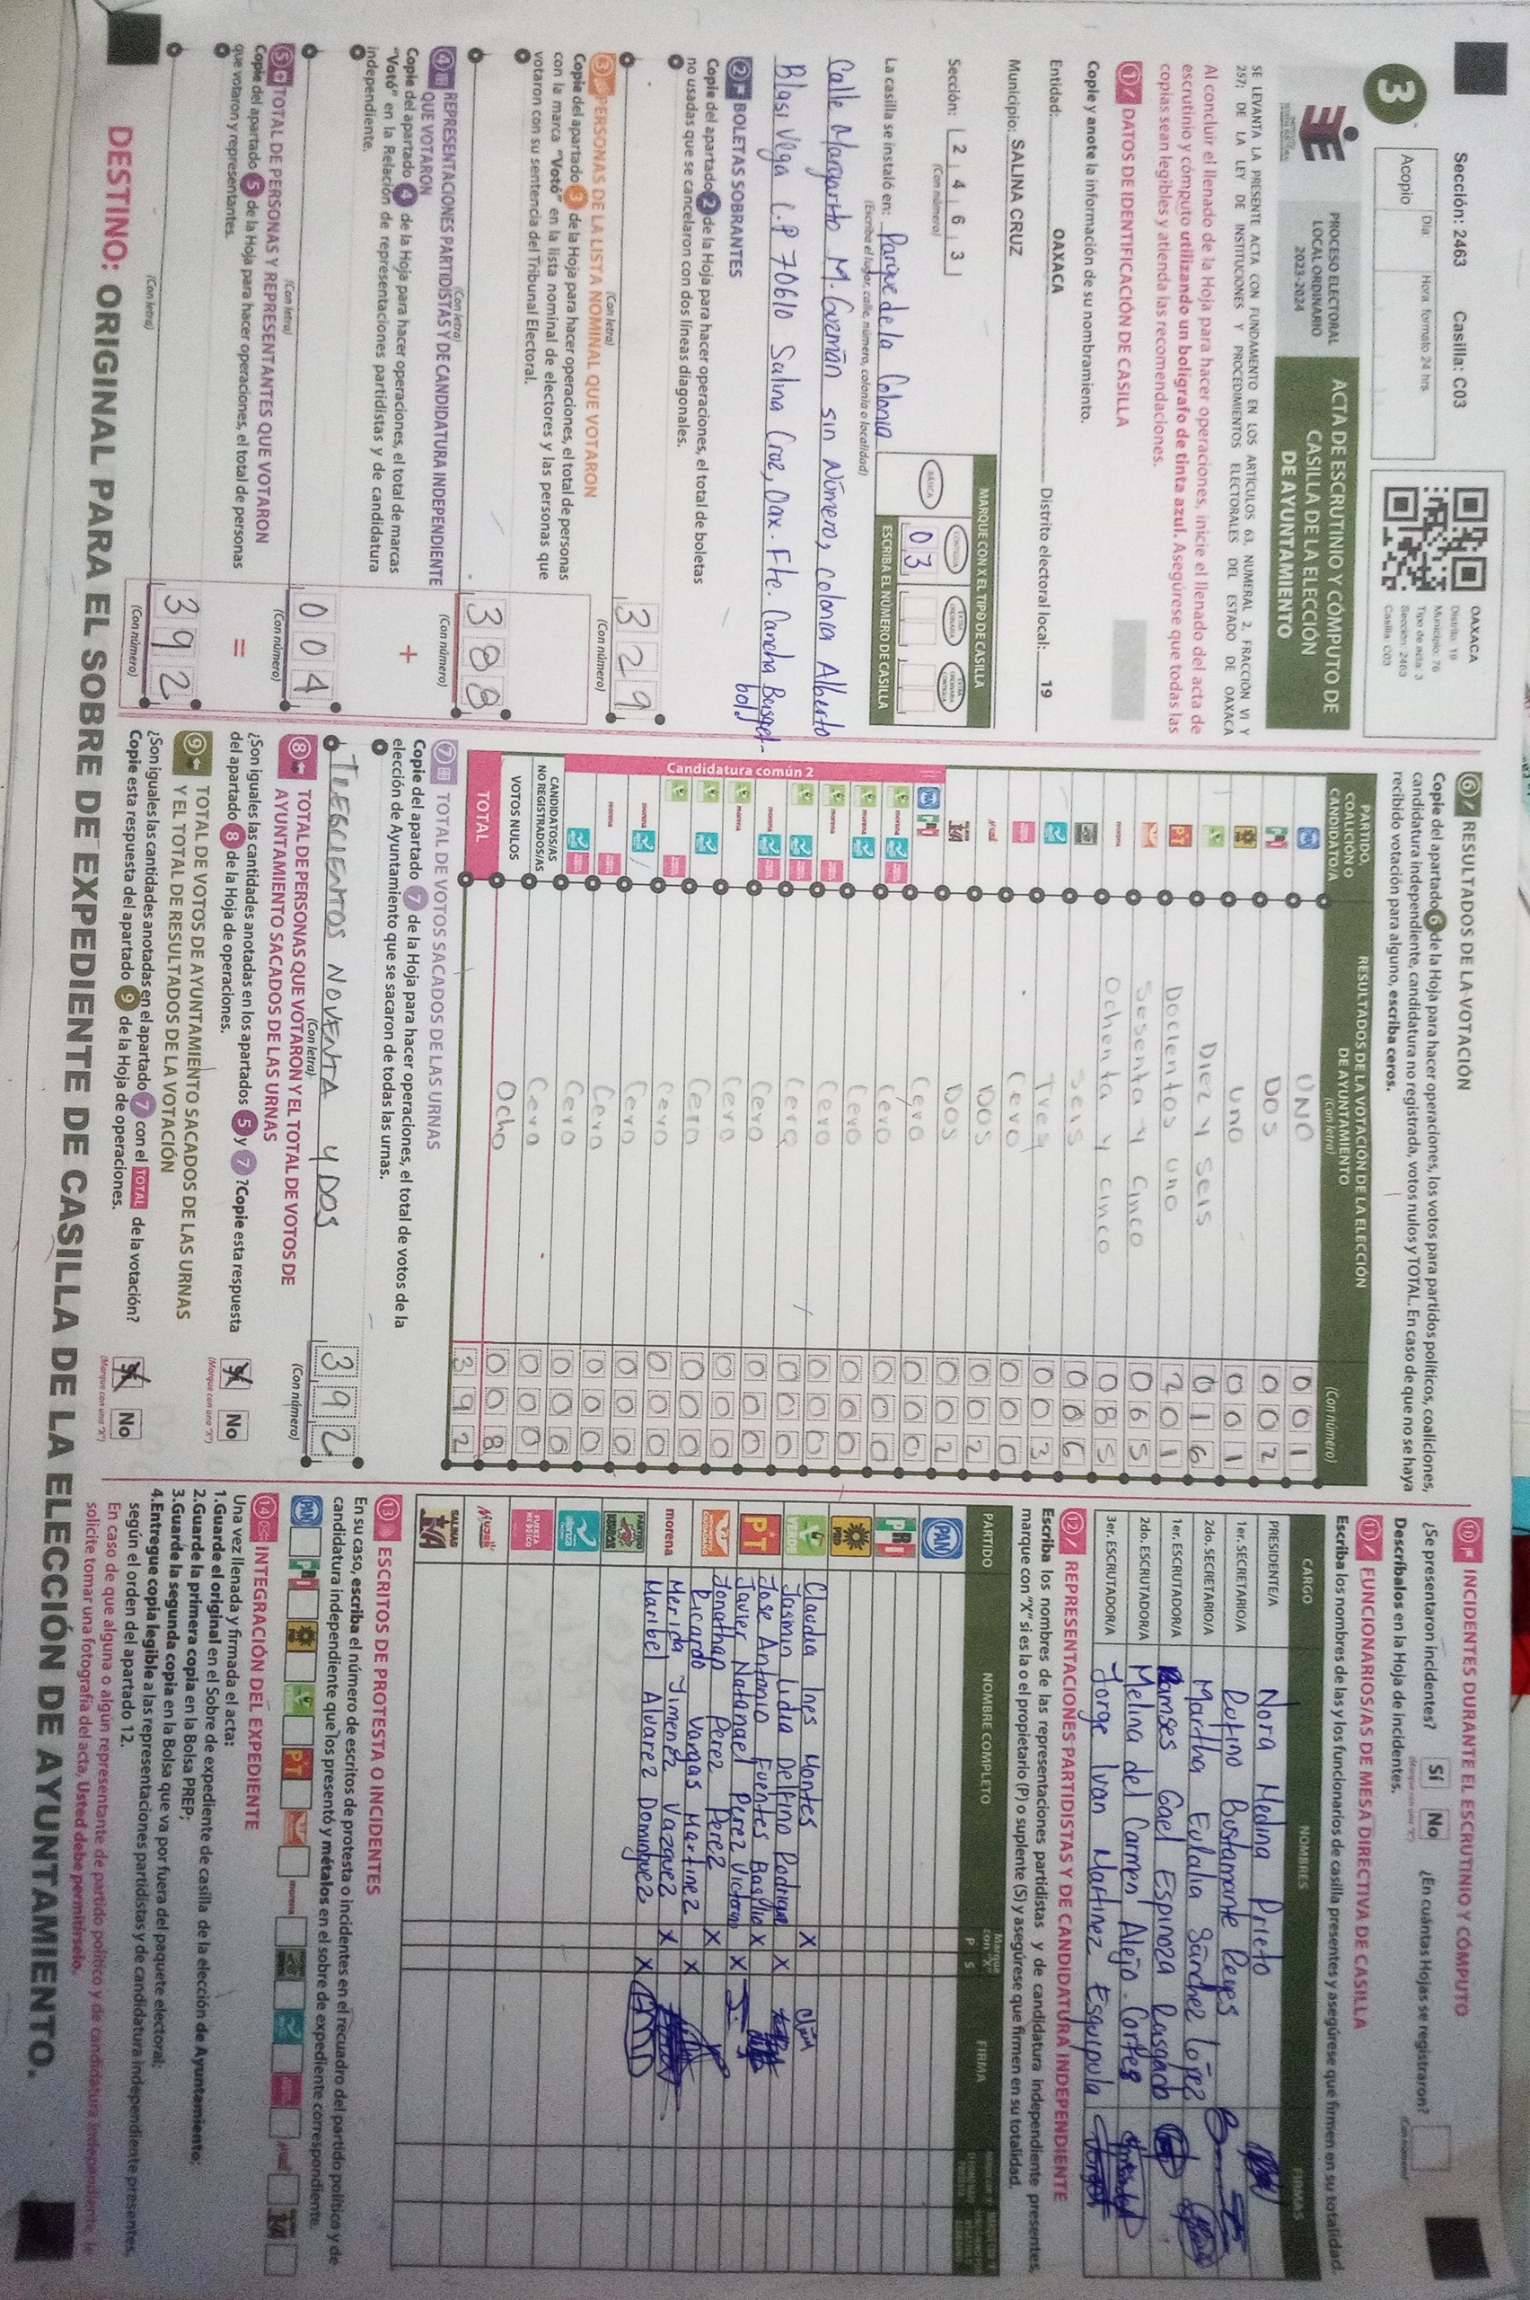 Sección: 2463 Casilla: C03
3
Día
Hora formato 24 hrs
Acopio
OAXACA
Distrito: 19
Municipio: 76
Tipo de acta: 3
Sección: 2463
Casilla: C03
PROCESO ELECTORAL
LOCAL ORDINARIO
2023-2024
ACTA DE ESCRUTINIO Y CÓMPUTO DE
CASILLA DE LA ELECCIÓN
DE AYUNTAMIENTO
SE LEVANTA LA PRESENTE ACTA CON FUNDAMENTO EN LOS ARTÍCULOS 63, NUMERAL 2, FRACCIÓN VI Y
257; DE LA LEY DE INSTITUCIONES Y PROCEDIMIENTOS ELECTORALES DEL ESTADO DE OAXACA
Al concluir el llenado de la Hoja para hacer operaciones, inicie el llenado del acta de
escrutinio y cómputo utilizando un bolígrafo de tinta azul. Asegúrese que todas las
copias sean legibles y atienda las recomendaciones.
1 DATOS DE IDENTIFICACIÓN DE CASILLA
Copie y anote la información de su nombramiento.
Entidad: OAXACA Distrito electoral local: 19
Municipio: SALINA CRUZ
Sección: 2 4 6 3
(Con número)
MARQUE CON X EL TIPO DE CASILLA
BÁSICA
03
ESCRIBA EL NÚMERO DE CASILLA
La casilla se instaló en: Parque de la Colonia
(Escriba el lugar, calle, número, colonia o localidad)
Calle Margarito M. Guzmán sin Número, colonia Alberto
Blasi Vega C.P 70610 Salina Cruz, Oax. Fte. Cancha Basquet-
bol.
2 BOLETAS SOBRANTES
Copie del apartado 2 de la Hoja para hacer operaciones, el total de boletas
no usadas que se cancelaron con dos líneas diagonales.
329
(Con letra) (Con número)
3 PERSONAS DE LA LISTA NOMINAL QUE VOTARON
Copie del apartado 3 de la Hoja para hacer operaciones, el total de personas
con la marca "Votó" en la lista nominal de electores y las personas que
votaron con su sentencia del Tribunal Electoral.
388
(Con letra) (Con número)
4 REPRESENTACIONES PARTIDISTAS Y DE CANDIDATURA INDEPENDIENTE
QUE VOTARON
Copie del apartado 4 de la Hoja para hacer operaciones, el total de marcas
"Votó" en la Relación de representaciones partidistas y de candidatura
independiente.
+
004
(Con letra) (Con número)
5 TOTAL DE PERSONAS Y REPRESENTANTES QUE VOTARON
Copie del apartado 5 de la Hoja para hacer operaciones, el total de personas
que votaron y representantes.
=
392
(Con letra) (Con número)
6 RESULTADOS DE LA VOTACIÓN
Copie del apartado 6 de la Hoja para hacer operaciones, los votos para partidos políticos, coaliciones,
candidatura independiente, candidatura no registrada, votos nulos y TOTAL. En caso de que no se haya
recibido votación para alguno, escriba ceros.
PARTIDO,
COALICIÓN O
CANDIDATO/A
RESULTADOS DE LA VOTACIÓN DE LA ELECCIÓN
DE AYUNTAMIENTO
(Con letra) (Con número)
PAN UNO 001
PRI DOS 002
uno 001
Diez y seis 016
PT Docientos uno 201
sesenta y cinco 065
morena Ochenta y cinco 085
seis 006
Tres 003
Cero 000
DOS 002
DOS 002
PAN PRI Cero 000
Candidatura común 2
cero 000
Cero 000
Cero 000
Cero 000
Cero 000
Cero 000
Cero 000
Cero 000
Cero 000
Cero 000
Cero 000
CANDIDATOS/AS
NO REGISTRADOS/AS Cero 000
VOTOS NULOS Ocho 008
TOTAL 392
7 TOTAL DE VOTOS SACADOS DE LAS URNAS
Copie del apartado 7 de la Hoja para hacer operaciones, el total de votos de la
elección de Ayuntamiento que se sacaron de todas las urnas.
TRESCIENTOS NOVENTA Y DOS 392
(Con letra) (Con número)
8 TOTAL DE PERSONAS QUE VOTARON Y EL TOTAL DE VOTOS DE
AYUNTAMIENTO SACADOS DE LAS URNAS
¿Son iguales las cantidades anotadas en los apartados 5 y 7 ?Copie esta respuesta
del apartado 8 de la Hoja de operaciones.
Sí No
(Marque con una "X")
9 TOTAL DE VOTOS DE AYUNTAMIENTO SACADOS DE LAS URNAS
Y EL TOTAL DE RESULTADOS DE LA VOTACIÓN
¿Son iguales las cantidades anotadas en el apartado 7 con el TOTAL de la votación?
Copie esta respuesta del apartado 9 de la Hoja de operaciones.
Sí No
(Marque con una "X")
10 INCIDENTES DURANTE EL ESCRUTINIO Y CÓMPUTO
¿Se presentaron incidentes? Sí No ¿En cuántas Hojas se registraron?
(Marque con una "X") (Con número)
Descríbalos en la Hoja de incidentes.
11 FUNCIONARIOS/AS DE MESA DIRECTIVA DE CASILLA
Escriba los nombres de las y los funcionarios de casilla presentes y asegúrese que firmen en su totalidad.
CARGO NOMBRES FIRMAS
PRESIDENTE/A Nora Medina Prieto
1er. SECRETARIO/A Rufino Bustamante Reyes
2do. SECRETARIO/A Martha Eulalia Sánchez López
1er. ESCRUTADOR/A Ramses Gael Espinoza Rasgado
2do. ESCRUTADOR/A Melina del Carmen Alejo Cortes
3er. ESCRUTADOR/A Jorge Ivan Martinez Esquipula
12 REPRESENTACIONES PARTIDISTAS Y DE CANDIDATURA INDEPENDIENTE
Escriba los nombres de las representaciones partidistas y de candidatura independiente presentes,
marque con "X" si es la o el propietario (P) o suplente (S) y asegúrese que firmen en su totalidad.
PARTIDO NOMBRE COMPLETO Marque con "X" P S FIRMA
PAN
PRI
PRD
VERDE Claudia Ines Montes X
Jasmin Lidia Delfino Rodriguez X
PT Jose Antonio Fuentes Basilio X
Javier Natanael Perez Victoria X
Jonathan Perez Perez X
Ricardo Vargas Martinez X
morena Merida Jimenez Vazquez X
Maribel Alvarez Dominguez X
13 ESCRITOS DE PROTESTA O INCIDENTES
En su caso, escriba el número de escritos de protesta o incidentes en el recuadro del partido político y de
candidatura independiente que los presentó y métalos en el sobre de expediente correspondiente.
PAN PRI PT morena
14 INTEGRACIÓN DEL EXPEDIENTE
Una vez llenada y firmada el acta:
1.Guarde el original en el Sobre de expediente de casilla de la elección de Ayuntamiento;
2.Guarde la primera copia en la Bolsa PREP;
3.Guarde la segunda copia en la Bolsa que va por fuera del paquete electoral;
4.Entregue copia legible a las representaciones partidistas y de candidatura independiente presentes,
según el orden del apartado 12.
En caso de que alguna o algún representante de partido político y de candidatura independiente, le
solicite tomar una fotografía del acta, Usted debe permitírselo.
DESTINO: ORIGINAL PARA EL SOBRE DE EXPEDIENTE DE CASILLA DE LA ELECCIÓN DE AYUNTAMIENTO.